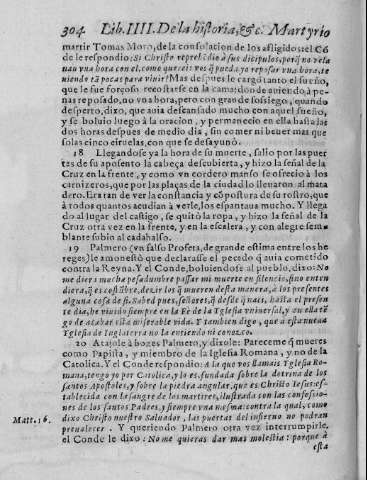 304 Lib. IIII. De la historia, &c. Martyrio
martir Tomas Moro, de la consolacion de los afligidos. el Cõ
de le respondio: Si Christo reprehẽdio à sus dicipulos, porq̃ no vela
uan vna hora con el, como quereis vos q̃ pueda yo reposar vna hora, te
niendo tã pocas para viuir? Mas despues le cargò tanto el sueño,
que le fue forçoso recostarse en la cama: donde auiendo à pe-
nas reposado, no vna hora, pero con grande sossiego, quando
despertò, dixo, que auia descansado mucho con aquel sueño,
y se boluio luego à la oracion, y permanecio en ella hasta las
dos horas despues de medio dia, sin comer ni beuer mas que
solas cinco ciruelas, con que se desayunò.
18 Llegandose ya la hora de su muerte, salio por las puer
tas de su aposento la cabeça descubierta, y hizo la señal de la
Cruz en la frente, y como vn cordero manso se ofrecio à los
carnizeros, que por las plaças de la ciudad lo lleuaron al mata
dero. Era tan de ver la constancia y cõpostura de su rostro, que
à todos quantos acudian à verle, los espantaua mucho. Y llega
do al lugar del castigo, se quitò la ropa, y hizo la señal de la
Cruz otra vez en la frente, y en la escalera, y con alegre sem-
blante subio al cadahalso.
19 Palmero (vn falso Profeta, de grande estima entre los he
reges) le amonestò que declarasse el pecado q̃ auia cometido
contra la Reyna. Y el Conde, boluiendose al pueblo, dixo: No
me diera mucha pesadumbre passar mi muerte en silencio, sino enten
diera, q̃ es costũbre, dezir los q̃ mueren desta manera, à los presentes
alguna cosa de si. Sabed pues, señores, q̃ desde q̃ naci, hasta el presen
te dia, he viuido siempre en la Fè de la Yglesia vniuersal, y en ella tẽ
go de acabar esta miserable vida. Y tambien digo, que à esta nueua
Yglesia de Inglaterra no la entiendo ni conozco.
20 Atajole à bozes Palmero, y dizole: Pareceme q̃ mueres
como Papista, y miembro de la Iglesia Romana, y no de la
Catolica. Y el Conde respondio: A la que vos llamais Yglesia Ro-
mana, tengo yo por Catolica, y lo es, fundada sobre la dotrina de los
santos Apostoles, y sobre la piedra angular, que es Christo Iesus: es-
tablecida con la sangre de los martires, ilustrada con las confessio-
nes de los santos Padres, y siempre vna mesma: contra la qual, como
Matt. 16. dixo Christo nuestro Saluador, las puertas del infierno no podran
preualecer. Y queriendo Palmero otra vez interrumpirle,
el Conde le dixo: No me quieras dar mas molestia: porque à
esta